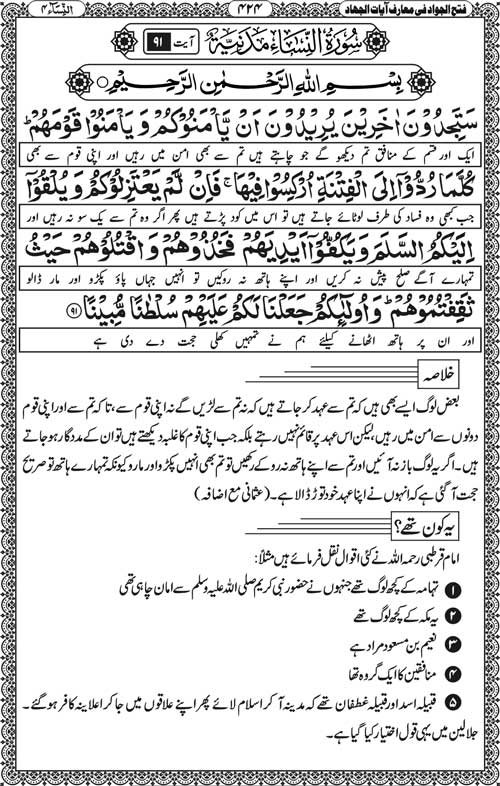 فتح الجواد فی معارف آیات الجهاد ۴۲۴ النساء ۴
سُوْرَۃُ النِّسَاءِ مَدَنِیَّۃٌ آیت ۹۱
بِسْمِ اللهِ الرَّحْمٰنِ الرَّحِیْمِ
سَتَجِدُوْنَ اٰخَرِیْنَ یُرِیْدُوْنَ اَنْ یَّاْمَنُوْكُمْ وَ یَاْمَنُوْا قَوْمَهُمْ ؕ
ایک اور قسم کے منافق تم دیکھو گے جو چاہتے ہیں تم سے بھی امن میں رہیں اور اپنی قوم سے بھی
كُلَّمَا رُدُّوْۤا اِلَی الْفِتْنَةِ اُرْكِسُوْا فِیْهَا ۚ فَاِنْ لَّمْ یَعْتَزِلُوْكُمْ وَ یُلْقُوْۤا
جب کبھی وہ فساد کی طرف لوٹائے جاتے ہیں تو اس میں کود پڑتے ہیں پھر اگر وہ تم سے یک سو نہ رہیں اور
اِلَیْكُمُ السَّلَمَ وَ یَكُفُّوْۤا اَیْدِیَهُمْ فَخُذُوْهُمْ وَ اقْتُلُوْهُمْ حَیْثُ
تمہارے آگے صلح پیش نہ کریں اور اپنے ہاتھ نہ روکیں تو انہیں جہاں پاؤ پکڑو اور مار ڈالو
ثَقِفْتُمُوْهُمْ ؕ وَ اُولٰٓىِٕكُمْ جَعَلْنَا لَكُمْ عَلَیْهِمْ سُلْطٰنًا مُّبِیْنًا ۹۱
اور ان پر ہاتھ اٹھانے کیلئے ہم نے تمہیں کھلی حجت دے دی ہے
خلاصہ
بعض لوگ ایسے بھی ہیں کہ تم سے عہد کر جاتے ہیں کہ نہ تم سے لڑیں گے نہ اپنی قوم سے، تاکہ تم سے اور اپنی قوم
دونوں سے امن میں رہیں، لیکن اس عہد پر قائم نہیں رہتے بلکہ جب اپنی قوم کا غلبہ دیکھتے ہیں تو ان کے مددگار ہو جاتے
ہیں۔ اگر یہ لوگ باز نہ آئیں اور تم سے اپنے ہاتھ نہ روکے رکھیں تو تم بھی انہیں پکڑو اور مارو کیونکہ تمہارے ہاتھ تو صریح
حجت آ گئی ہے کہ انہوں نے اپنا عہد خود توڑ ڈالا ہے۔ (عثمانی مع اضافہ)
یہ کون تھے؟
امام قرطبی رحمہ اللہ نے کئی اقوال نقل فرمائے ہیں مثلاً:
۱ تہامہ کے کچھ لوگ تھے جنہوں نے حضور نبی کریم صلی اللہ علیہ وسلم سے امان چاہی تھی
۲ یہ مکہ کے کچھ لوگ تھے
۳ نعیم بن مسعود مراد ہے
۴ منافقین کا ایک گروہ تھا
۵ قبیلہ اسد اور قبیلہ غطفان تھے کہ مدینہ آ کر اسلام لائے پھر اپنے علاقوں میں جا کر اعلانیہ کافر ہو گئے۔
جلالین میں یہی قول اختیار کیا گیا ہے۔